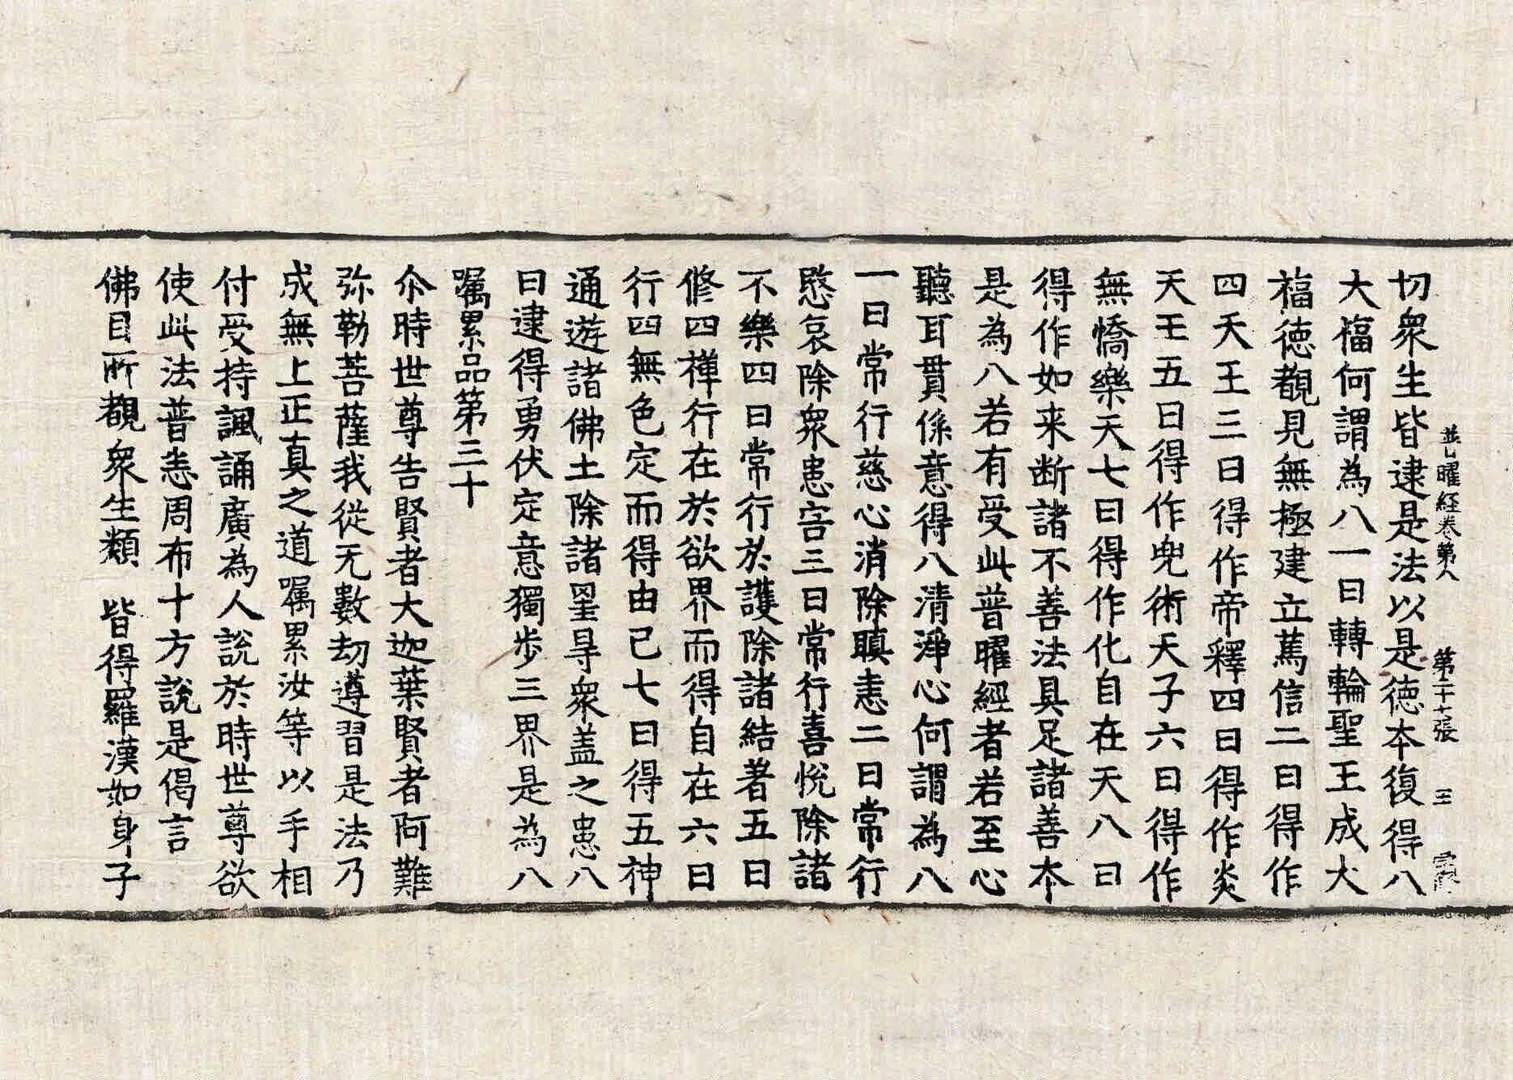 普曜経卷第八 第二十七張 王
切衆生皆逮是法以是徳夲復得八
大福何謂為八一曰轉輪聖王成大
福徳覩見無極建立篤信二曰得作
四天王三曰得作帝釋四曰得作炎
天王五曰得作兜術天子六曰得作
無憍樂天七曰得作化自在天八曰
得作如来断諸不善法具足諸善夲
是為八若有受此普曜經者若至心
聽耳貫係意得八清淨心何謂為八
一曰常行慈心消除瞋恚二曰常行
愍哀除衆患害三曰常行喜悅除諸
不樂四曰常行於護除諸結著五曰
修四禅行在於欲界而得自在六曰
行四無色定而得由已七曰得五神
通遊諸佛土除諸罣㝵衆盖之患八
曰逮得勇伏定意獨步三界是為八
囑累品第三十
尒時世尊告賢者大迦葉賢者阿難
弥勒菩薩我從无數劫遵習是法乃
成無上正真之道囑累汝等以手相
付受持諷誦廣為人說於時世尊欲
使此法普悉周布十方說是偈言
佛目所覩衆生類 皆得羅漢如身子